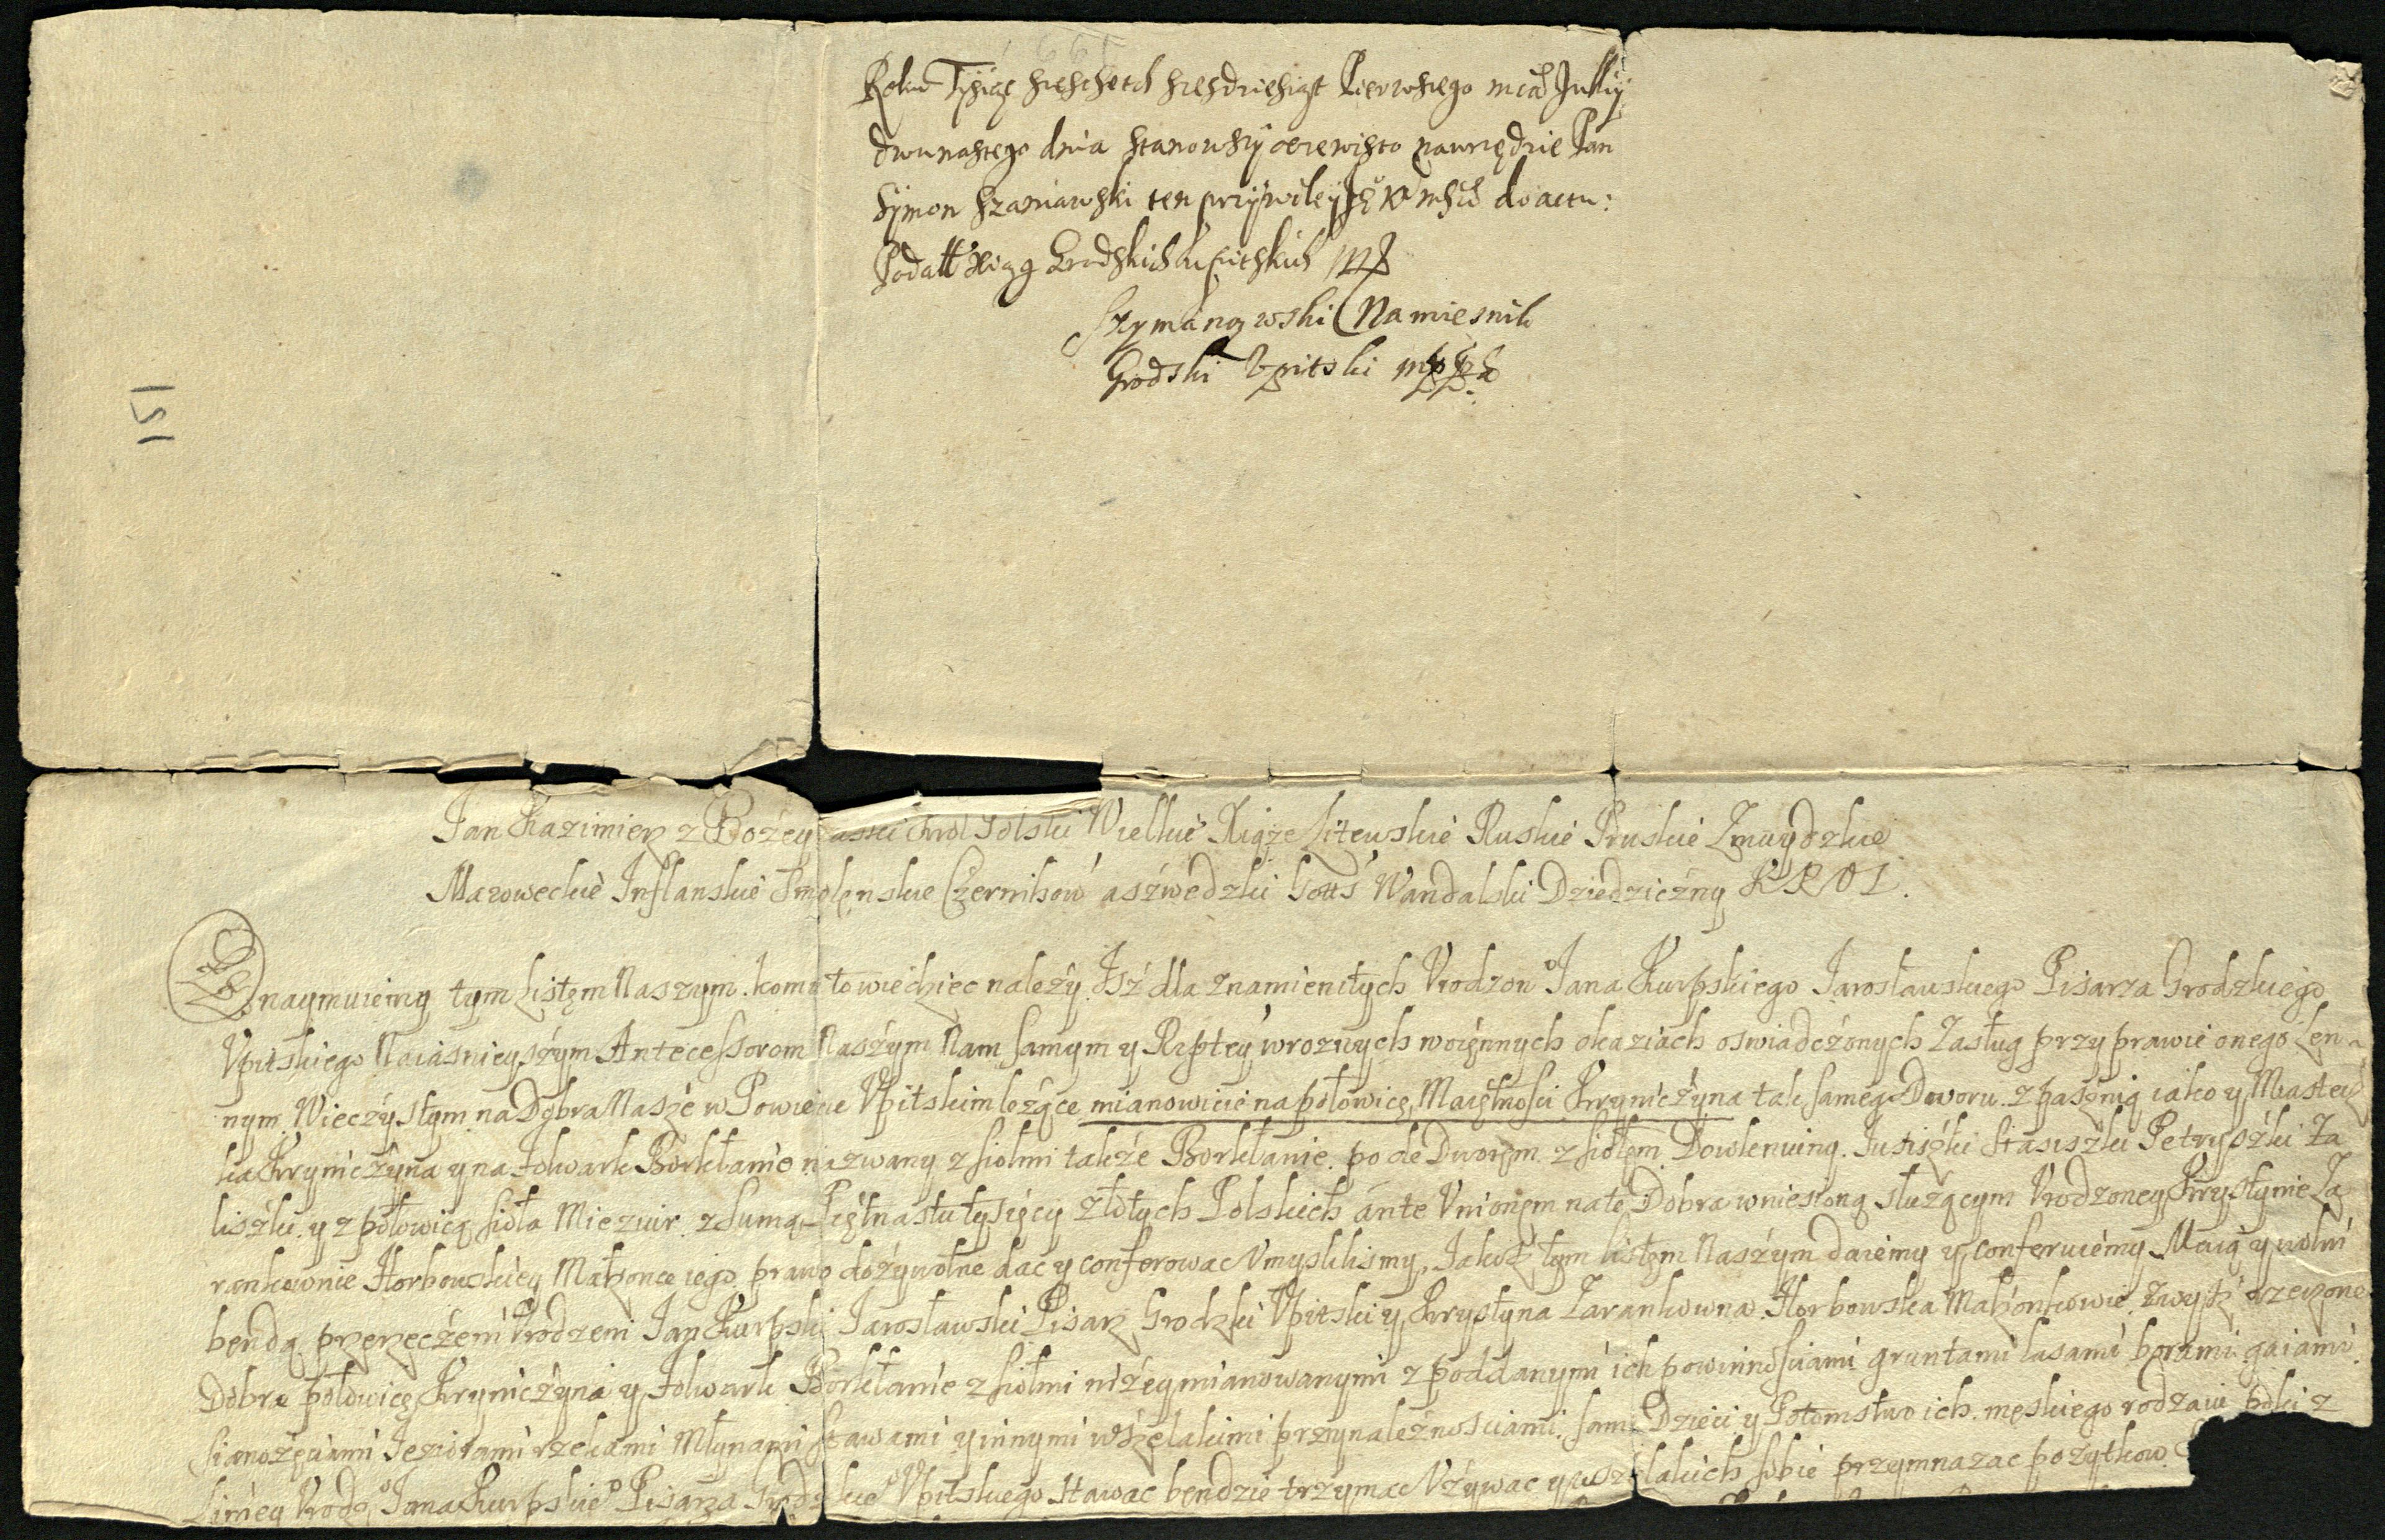 Roku Tysiąc szescsetch szesdziesiąt Pierwszego mca Julÿ
dwunastego dnia stanowszÿ oczewisto na urzędzie Pan
Symon Szaniawski ten przÿwileÿ do actu:
Podał Xiąg Grodskich Upitskich mp
Szymanowski Namiesnik
Grodski Upitski mpp
151
Jan Kazimierz z Bożey Łaski Krol Polski Wielkie Xiąże Litewskie Ruskie Pruskie Zmuydzkie
Mazoweckie Inflanskie Smolęnskie Czernihow a szwedzki Gotts Wandalski Dziedziczny KROL.
Znaymuiemy tym Listęm Naszym. komu to wiedziec należy Isz dla znamienitych Vrodzon Jana Kurpskiego Jarosławskiego Pisarza Grodzkiego
Vpitskiego Naiasnieyszym Antecessorom Naszym Nam samym y Rzptey w roznych woięnnych okaziach oswiadczonych Zasług przy prawie onego Len-
nym Wieczystym na Dobra Nasze w Powiecie Vpitskim leżące mianowicie na połowicę Maiętnosci Kryniczyna tak samego Dworu z pasznią iako y Miastecz
ka Kryniczyna y na Folwark Borklanie nazwany z siołmi także Borklanie. pode Dworęm z siołęm Dowlenuing. Jusiszki Stasiszki Petryszki Za
liszki. y z połowicą sioła Miezuir. z sumą Piętnastu tysięcy złotych Polskich ante Vnionęm na te Dobra wniesioną służącym Vrodzoney Krystynie Za
rankownie Horbowskiey Małżonce iego prawo dożywotne dac y conferowac Vmyslilismy, Jakoż tym listęm Naszym daiemy y conferuiemy. Maią y wolni
bendą przerzeczeni Vrodzeni Jan Kurpski Jarosławski Pisarz Grodzki Vpitski y Krystyna Zarankowna Horbowska Małżonkowie. zwysz rzeczone
Dobra połowicę Kryniczyna y Folwark Borklanie z siołmi niżey mianowanymi z poddanymi ich powinnosciami gruntami lasami borami gaiami.
sianożęciami Jeziorami rzekami Młynami Stawami y innymi wszelakimi przynależnosciami. sami Dzieci y Potomstwo ich męskiego rodzaiu poki z
Jana Kurpskie Pisarza Grodzkie Vpitskiego stawac bendzie trzymac Vżywac y wszelakich sobie przymnazac pożytkow